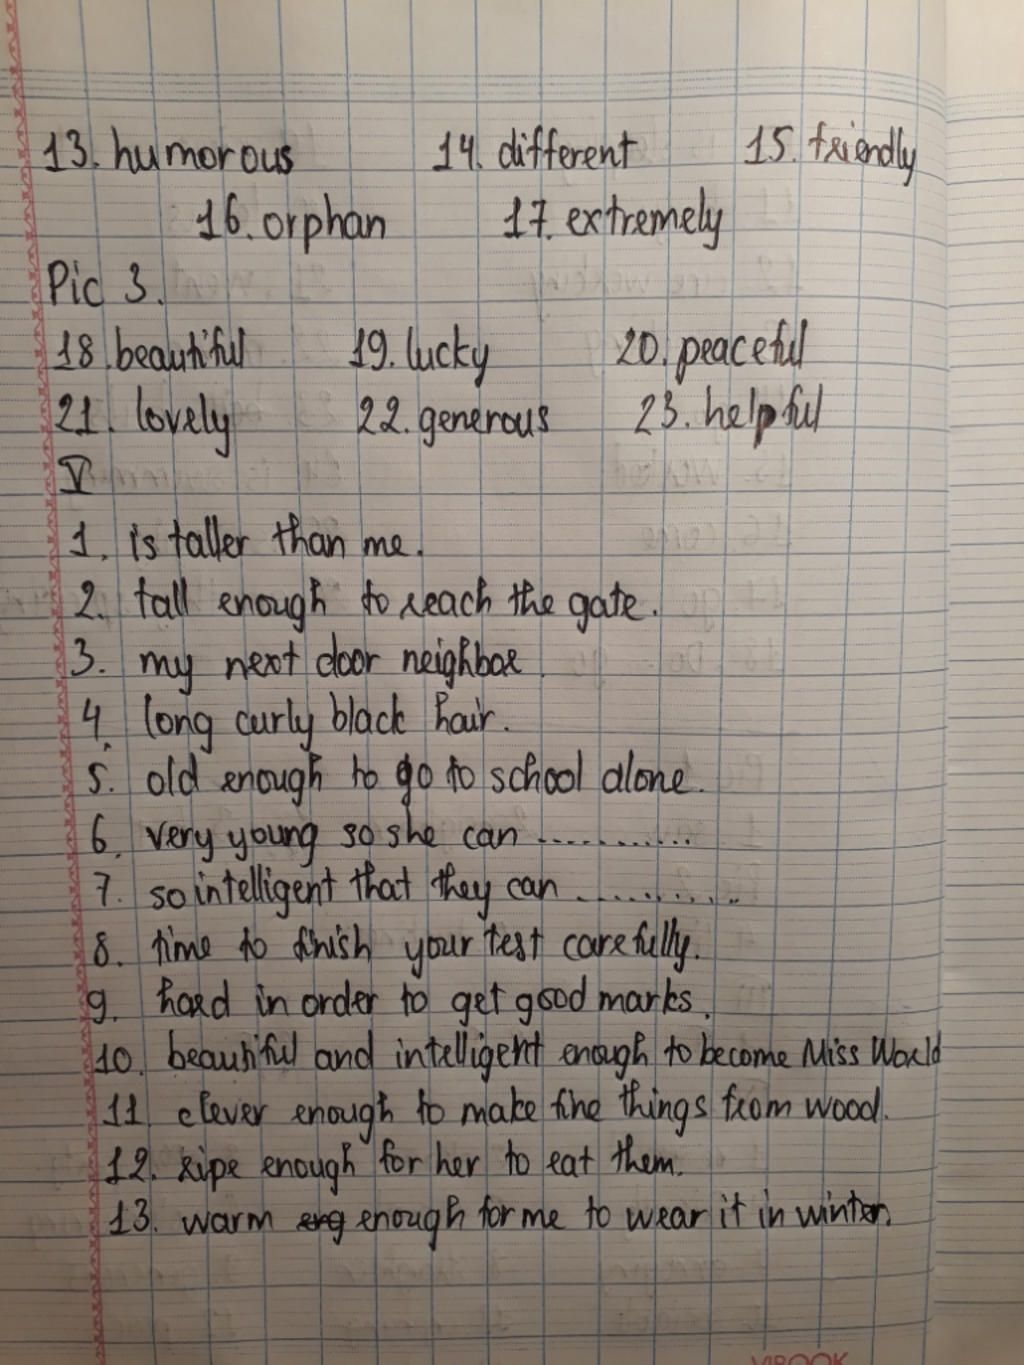 13. humorous 14. different 15. friendly
16. orphan 17. extremely
Pic 3.
18. beautiful 19. lucky 20. peaceful
21. lovely 22. generous 23. helpful
V
1. is taller than me.
2. tall enough to reach the gate.
3. my next door neighbor
4. long curly black hair.
5. old enough to go to school alone.
6. very young so she can ...........
7. so intelligent that they can ..........
8. time to finish your test carefully.
9. hard in order to get good marks.
10. beautiful and intelligent enough to become Miss World
11. clever enough to make fine things from wood.
12. ripe enough for her to eat them.
13. warm enough for me to wear it in winter.
VIBOOK